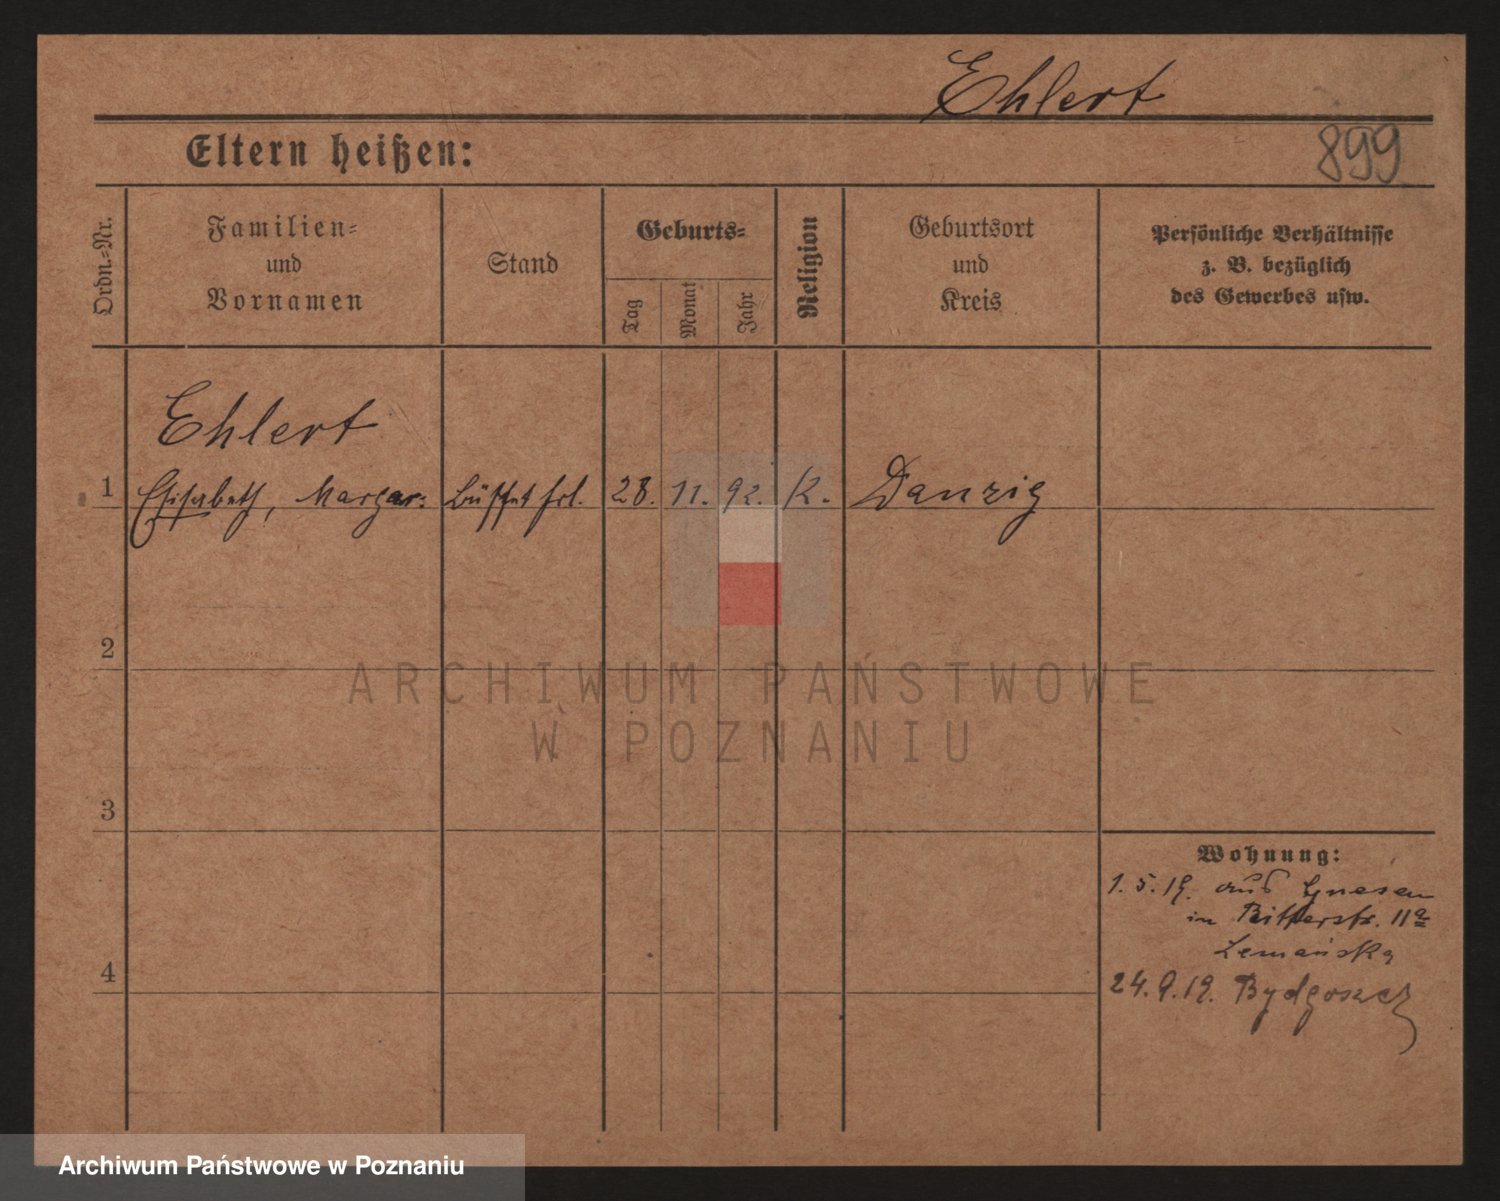 Ehlert
Eltern heißen:
899
Ordn.=Nr.
Familien=
und
Vornamen
Stand
Geburts=
Tag
Monat
Jahr
Religion
Geburtsort
und
Kreis
Persönliche Verhältnisse
z. B. bezüglich
des Gewerbes usw.
Ehlert
1 Elisabeth, Margar: Büffetfrl. 28. 11. 92. K. Danzig
2
ARCHIWUM PAŃSTWOWE
W POZNANIU
3
Wohnung:
1.5.19. aus Gnesen
in Ritterstr. 11a
Lemańska
4
24.9.19. Bydgoszcz
Archiwum Państwowe w Poznaniu